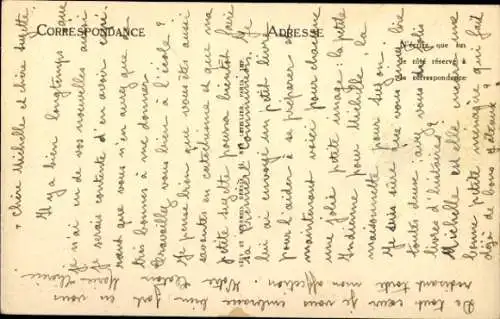 CORRESPONDANCE
ADRESSE
N'écrire que un
côté réservé à
la correspondance
+ Chère Michelle et chère Suzette.
Il y a bien longtemps que
je n'ai eu de vos nouvelles aussi
je serais contente d'en avoir car
que vous n'en aurez que
très bonnes à me donner.
Travaillez vous bien à l'école ?
Je pense bien que vous êtes aussi
savantes en catéchisme et que ma
petite Suzette pourra bientôt faire
sa Première Communion. Je
lui ai envoyé un petit livre
pour l'aider à se préparer et
voici pour chacune
une jolie petite image : la petite
Indienne pour Michelle la
maisonnette pour Suzon.
Je suis sûre que vous aimez lire
toutes deux avez vous de jolis
livres d'histoires ?
Michelle est elle une
bonne petite ménagère qui fait
déjà de bons gâteaux ?
De tout cœur je vous embrasse bien fort en vous
redisant toute mon affection. Votre
Marie